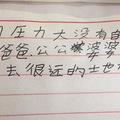 压力大没有自
爸爸公公婆婆
去很远的土也